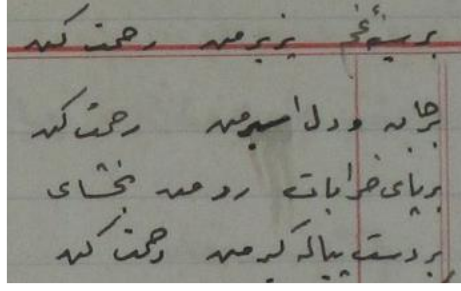 بر سینهٔ غم پذیر من رحمت کن
بر جان و دل اسیر من رحمت کن
بر پای خرابات رو من بخشای
بر دست پیاله گیر من رحمت کن